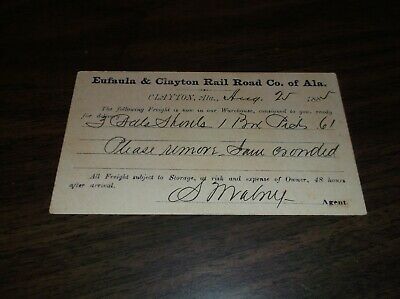 Eufaula & Clayton Rail Road Co. of Ala.
CLAYTON, Ala., Aug. 25 1885
The following Freight is now in our Warehouse, consigned to you, ready
for 1 Box 61
Please remove Same crowded
All Freight subject to Storage, at risk and expense of Owner, 48 hours
after arrival.
Agent.